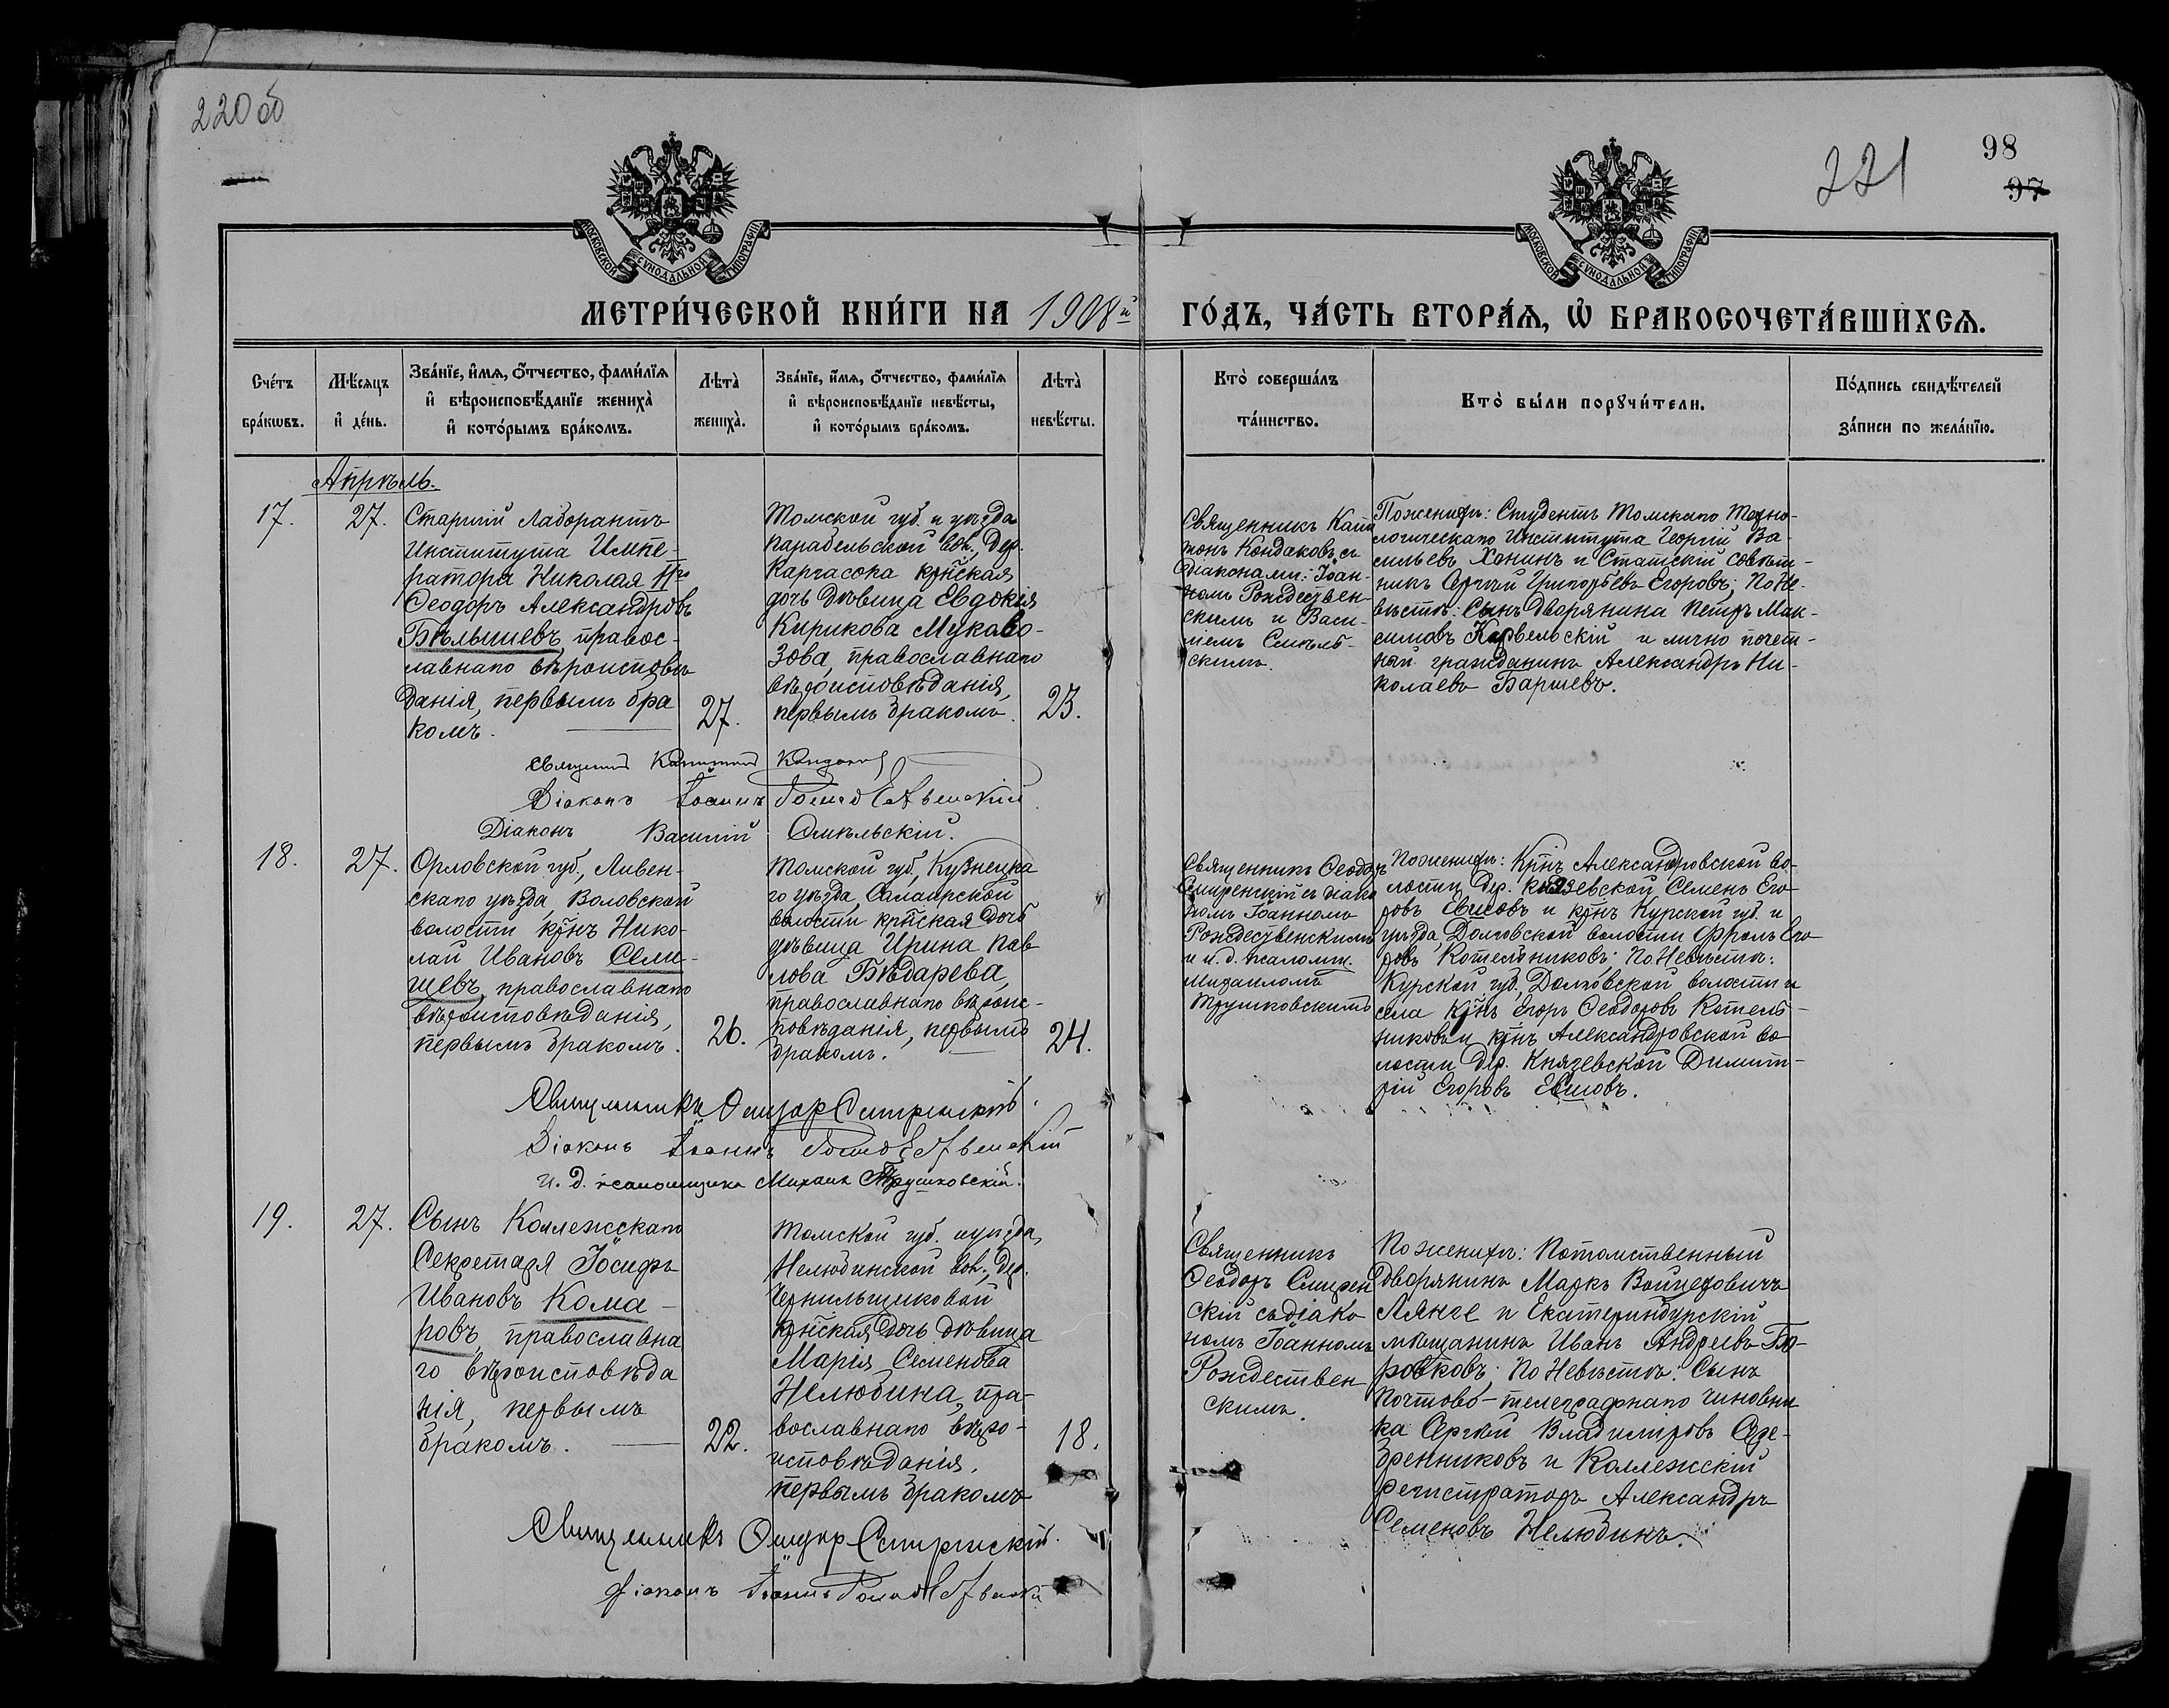 220 об
221
98
97
МОСКОВСКОЙ СУНОДАЛЬНОЙ ТИПОГРАФІИ
МОСКОВСКОЙ СУНОДАЛЬНОЙ ТИПОГРАФІИ
МЕТРИ́ЧЕСКОЙ КНИ́ГИ НА 1908й ГО́ДЪ, ЧА́СТЬ ВТОРА́Ѧ, Ѡ҆ БРАКОСОЧЕТА́ВШИХСѦ.
Сче́тъ бра́кѡвъ.
Мѣ́сяцъ и҆ де́нь.
Зва́нїе, и҆́мя, ѻ҆́тчество, фами́лїя и҆ вѣроисповѣ́данїе жениха̀ и҆ кото́рымъ бра́комъ.
Лѣта̀ жениха̀.
Зва́нїе, и҆́мя, ѻ҆́тчество, фами́лїя и҆ вѣроисповѣ́данїе невѣ́сты, и҆ кото́рымъ бра́комъ.
Лѣта̀ невѣ́сты.
Кто̀ соверша́лъ та́инство.
Кто̀ бы́ли порꙋчи́тели.
По́дпись свидѣ́телей за́писи по жела́нїю.
Апрѣль.
17.
27.
Старшій Лаборантъ
Института Импе-
ратора Николая IIго
Ѳеодоръ Александровъ
Бѣлышевъ, правос-
лавнаго вѣроисповѣ
данія, первымъ бра
комъ.
27.
Томской губ. и уѣзда
Парабельской вол., дер.
Каргасока кр҃нская
дочь дѣвица Евдокія
Кирикова Мукаво-
зова, православнаго
вѣроисповѣданія,
первымъ бракомъ.
23.
Священникъ Капи
тонъ Кондаковъ съ
діаконами: Іоан-
номъ Рождествен-
скимъ и Васи-
ліемъ Смѣль-
скимъ.
По женихѣ: Студентъ Томскаго Техно-
логическаго Института Георгій Ва-
сильевъ Ханинъ и Статскій Совѣт-
никъ Сергѣй Григорьевъ Егоровъ; По Не-
вѣстѣ: Сынъ Дворянина Петръ Мак-
симовъ Карвельскій и лично почет-
ный гражданинъ Александръ Ни-
колаевъ Баршевъ.
Священникъ Капитонъ Кондаковъ
Діаконъ Іоаннъ Рождественскій
Діаконъ Василій Смѣльскій.
18.
27.
Орловской губ., Ливен-
скаго уѣзда, Воловской
волости кр҃нъ Нико-
лай Ивановъ Сели-
щевъ, православнаго
вѣроисповѣданія,
первымъ бракомъ.
26.
Томской губ., Кузнецка
го уѣзда, Салаирской
волости кр҃нская дочь
дѣвица Ирина Пав
лова Бѣдарева,
православнаго вѣроис-
повѣданія, первымъ
бракомъ.
24.
Священникъ Ѳеодоръ
Смиренскій съ діако
номъ Іоанномъ
Рождественскимъ
и и. д. псаломщ.
Михаиломъ
Трушковскимъ
По женихѣ: Кр҃нъ Александровской во-
лости Дер. Князевской Семенъ Его
ровъ Евшовъ и кр҃нъ Курской губ. и
уѣзда, Долговской волости Фролъ Его
ровъ Котельниковъ; По Невѣстѣ:
Курской губ., Долговской волости и
села кр҃нъ Егоръ Ѳеодоровъ Котель-
никовъ и кр҃нъ Александровской во
лости Дер. Князевской Димит-
рій Егоровъ Евшовъ.
Священникъ Ѳеодоръ Смиренскій.
Діаконъ Іоаннъ Рождественскій
И. д. псаломщика Михаилъ Трушковскій.
19.
27.
Сынъ Коллежскаго
Секретаря Іосифъ
Ивановъ Кома-
ровъ, православна
го вѣроисповѣда
нія, первымъ
бракомъ.
22.
Томской губ. и уѣзда,
Нелюбинской вол., дер.
Чернильщиковой
кр҃нская дочь дѣвица
Марія Семенова
Нелюбина, пра-
вославнаго вѣро-
исповѣданія,
первымъ бракомъ
18.
Священникъ
Ѳеодоръ Смирен
скій съ діако
номъ Іоанномъ
Рождествен
скимъ.
По женихѣ: Потомственный
Дворянинъ Маркъ Войцеховичъ
Лянге и Екатеринбурскій
мѣщанинъ Иванъ Андреевъ Бо-
ровковъ; По Невѣстѣ: Сынъ
Почтово-телеграфнаго чиновни
ка Сергѣй Владиміровъ Сере-
бренниковъ и Коллежскій
регистраторъ Александръ
Семеновъ Нелюбинъ.
Священникъ Ѳеодоръ Смиренскій.
Діаконъ Іоаннъ Рождественскій